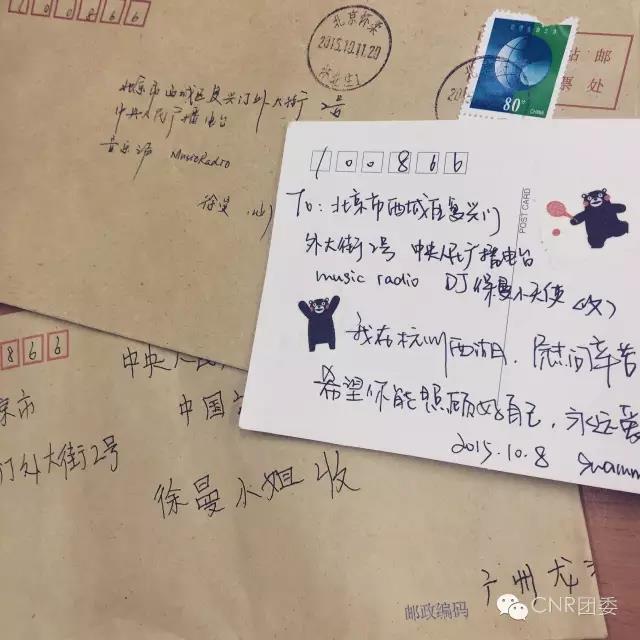 100866
北京市西城区复兴门外大街2号
中央人民广播电台
音乐之声 MusicRadio
徐曼 收
2015.10.11.20
80分
CHINA
邮
票处
100866
POST CARD
To:北京市西城区复兴门
外大街2号 中央人民广播电台
music radio DJ徐曼小天使(收)
我在杭州西湖,慰问辛苦
希望你能照顾好自己,永远爱
2015.10.8
866
中央人民
京市
中国
门外大街2号
徐曼小姐 收
广州
邮政编码
CNR团委